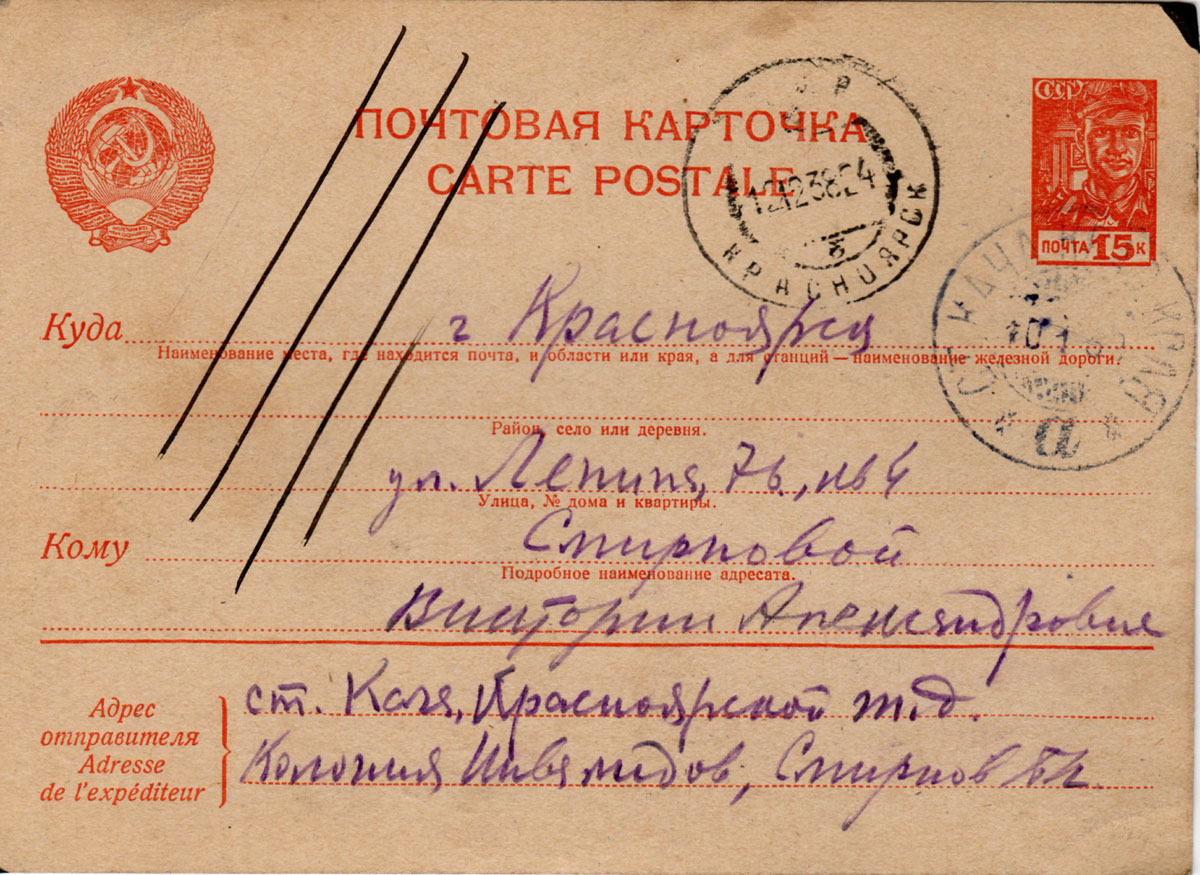 ПОЧТОВАЯ КАРТОЧКА
CARTE POSTALE
СССР
ПОЧТА 15 К
12.12.38 24
КРАСНОЯРСК
б
СТ. КАЧА КРАЯ
а
Куда г Красноярск
Наименование места, где находится почта, и области или края, а для станций — наименование железной дороги.
Район, село или деревня.
ул. Ленина, 76, кв 4
Улица, № дома и квартиры.
Кому Смирновой
Подробное наименование адресата.
Виктории Александровне
Адрес отправителя
Adresse de l'expéditeur
ст. Кача, Красноярской ж.д.
Колония Инвалидов, Смирнов